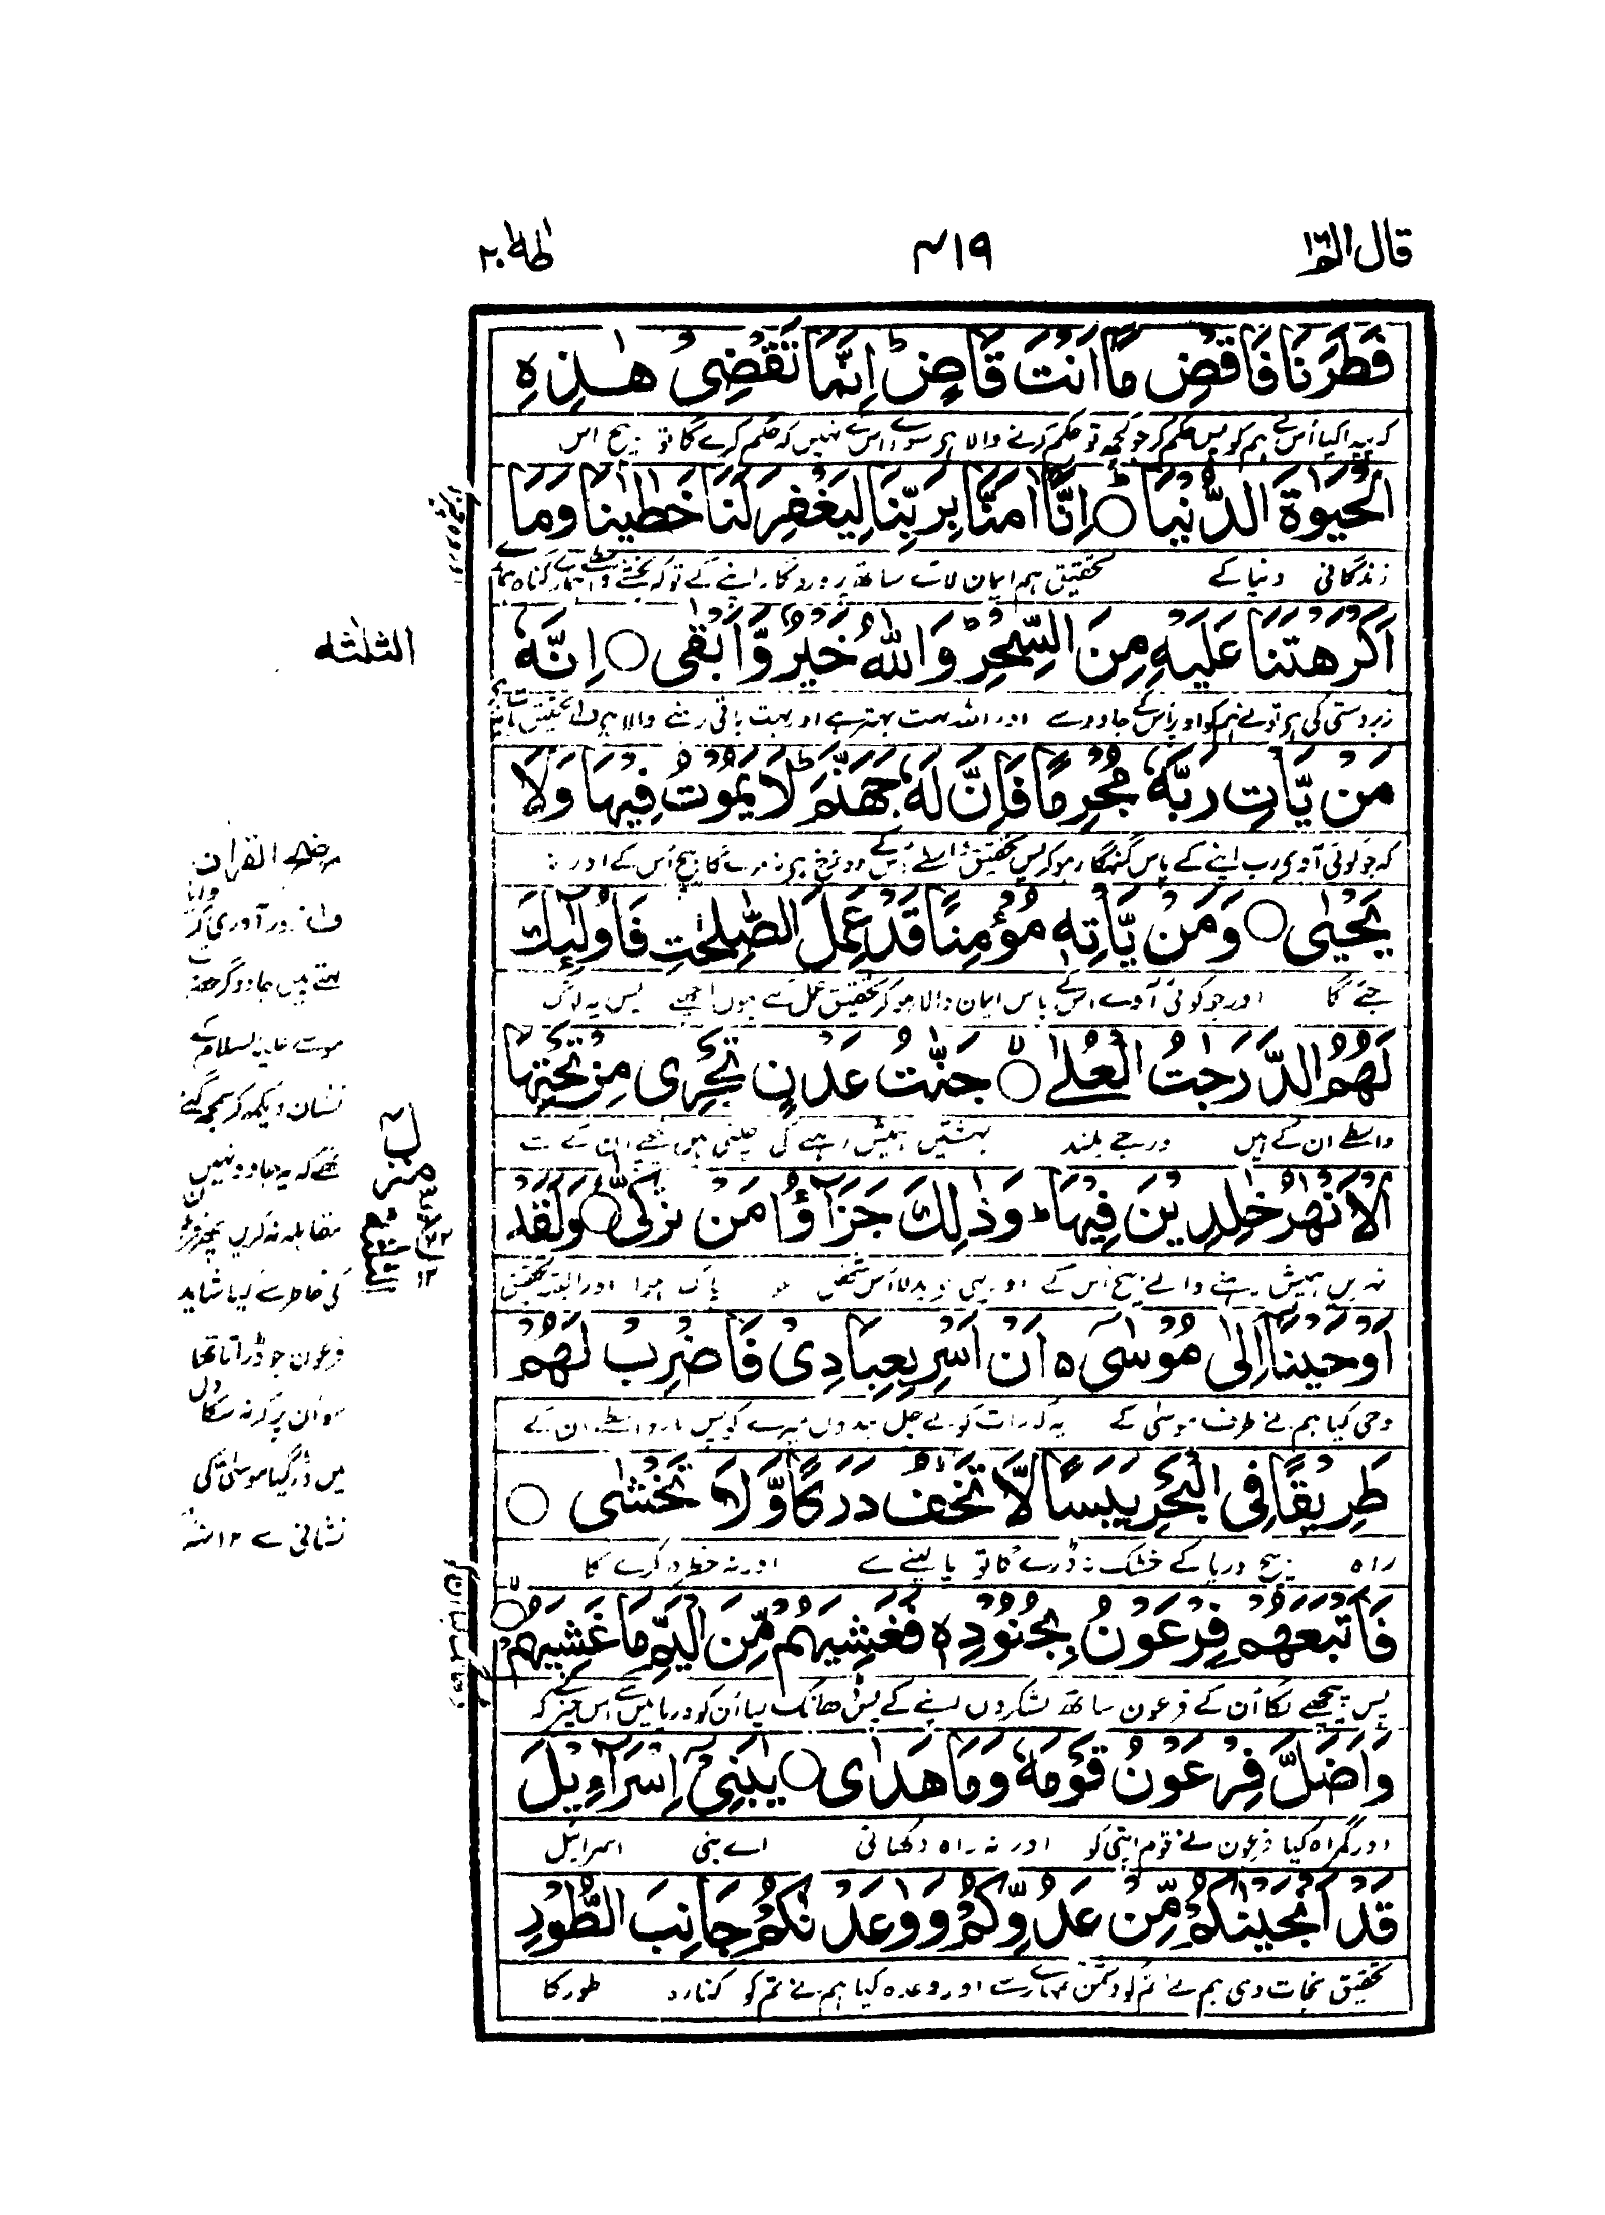 قال الم ١٦
٤١٩
طٰهٰ ٢٠
فَطَرَنَا فَاقْضِ مَآ اَنْتَ قَاضٍ ؕ اِنَّمَا تَقْضِیْ هٰذِهِ
حکم کر جو کچھ تو حکم کرنے والا ہے سوائے اس کے نہیں کہ حکم کرے گا تو بیچ اس
الْحَیٰوةَ الدُّنْیَا ؕ ○ اِنَّآ اٰمَنَّا بِرَبِّنَا لِیَغْفِرَ لَنَا خَطٰیٰنَا وَمَآ
زندگانی دنیا کے تحقیق ہم ایمان لائے ساتھ پروردگار اپنے کے تو کہ بخشے
اَكْرَهْتَنَا عَلَیْهِ مِنَ السِّحْرِ ؕ وَاللّٰهُ خَیْرٌ وَّاَبْقٰی ○ اِنَّهٗ
زبردستی کی ہے تو نے ہم کو اوپر اس کے جادو سے اور اللہ بہت بہتر ہے اور بہت باقی رہنے والا ہے تحقیق
مَنْ یَّاْتِ رَبَّهٗ مُجْرِمًا فَاِنَّ لَهٗ جَهَنَّمَ ؕ لَا یَمُوْتُ فِیْهَا وَلَا
کہ جو کوئی آوے رب اپنے کے پاس گنہگار ہو کر پس تحقیق واسطے اس کے دوزخ ہے نہ مرے گا بیچ اس کے اور نہ
یَحْیٰی ○ وَمَنْ یَّاْتِهٖ مُؤْمِنًا قَدْ عَمِلَ الصّٰلِحٰتِ فَاُولٰٓئِكَ
جئے گا اور جو کوئی آوے اس کے پاس ایمان والا ہو کر تحقیق عمل کئے ہوں اچھے پس یہ لوگ
لَهُمُ الدَّرَجٰتُ الْعُلٰی ۙ○ جَنّٰتُ عَدْنٍ تَجْرِیْ مِنْ تَحْتِهَا
واسطے ان کے ہیں درجے بلند بہشتیں ہمیش رہنے کی چلتی ہیں نیچے ان کے سے
الْاَنْهٰرُ خٰلِدِیْنَ فِیْهَا ؕ وَذٰلِكَ جَزٰٓؤُا مَنْ تَزَكّٰی ○ وَلَقَدْ
نہریں ہمیش رہنے والے بیچ اس کے اور یہی ہے بدلا اس شخص پاک ہوا اور البتہ تحقیق
اَوْحَیْنَآ اِلٰی مُوْسٰٓی ە اَنْ اَسْرِ بِعِبَادِیْ فَاضْرِبْ لَهُمْ
وحی کیا ہم نے طرف موسیٰ کے یہ کہ رات کو لے چل بندوں میرے کو پس مار واسطے ان کے
طَرِیْقًا فِی الْبَحْرِ یَبَسًا لَّا تَخٰفُ دَرَكًا وَّلَا تَخْشٰی ○
راہ بیچ دریا کے خشک نہ ڈرے گا تو پا لینے سے اور نہ خطرہ کرے گا
فَاَتْبَعَهُمْ فِرْعَوْنُ بِجُنُوْدِهٖ فَغَشِیَهُمْ مِّنَ الْیَمِّ مَا غَشِیَهُمْ ○
پس پیچھے لگا ان کے فرعون ساتھ لشکروں اپنے کے پس ڈھانک لیا ان کو دریا میں سے اس چیز نے کہ
وَاَضَلَّ فِرْعَوْنُ قَوْمَهٗ وَمَا هَدٰی ○ یٰبَنِیْٓ اِسْرَآءِیْلَ
اور گمراہ کیا فرعون نے قوم اپنی کو اور نہ راہ دکھائی اے بنی اسرائیل
قَدْ اَنْجَیْنٰكُمْ مِّنْ عَدُوِّكُمْ وَوٰعَدْنٰكُمْ جَانِبَ الطُّوْرِ
تحقیق نجات دی ہم نے تم کو دشمن تمہارے سے اور وعدہ کیا ہم نے تم کو کنارہ طور کا
الثلثه
موضح القرآن
ف زور آوری
ہیں جادوگر حضرت
موسے علیہ السلام کے
نشان دیکھ کر سمجھ گئے
تھے کہ یہ جادو نہیں
مقابلہ نہ کریں پھر فرعون
کی خاطر سے کیا شاید
فرعون جو ڈراتا تھا
سو ان پر کر نہ سکا دل
میں ڈر گیا موسیٰ کی
نشانی سے ١٢ منہ
منزل ٤